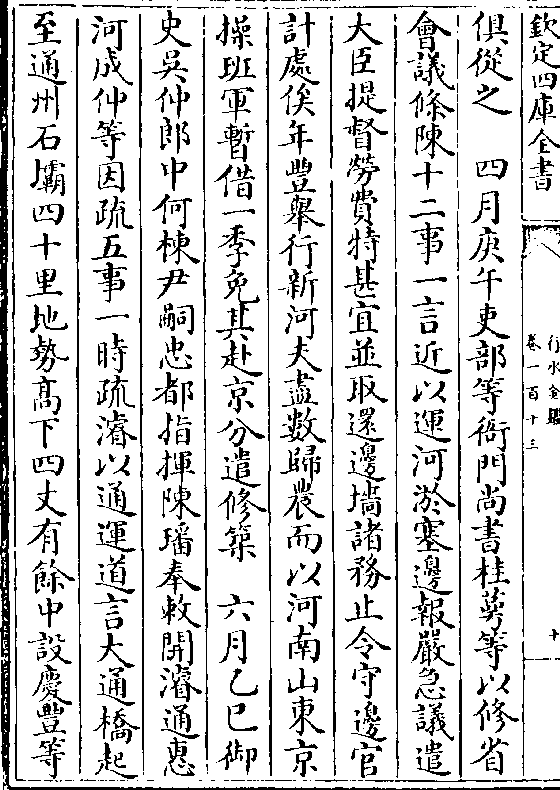 欽定四庫全書
行水金鑑
卷一百十三
十
俱從之　四月庚午吏部等衙門尚書桂萼等以修省
會議條陳十二事一言近以運河淤塞邊報嚴急議遣
大臣提督勞費特甚宜並取還邊墻諸務止令守邊官
計處俟年豐舉行新河夫盡數歸農而以河南山東京
操班軍暫借一季免其赴京分遣修築　六月乙巳御
史吳仲郎中何棟尹嗣忠都指揮陳璠奉敕開濬通惠
河成仲等因疏五事一時疏濬以通運道言大通橋起
至通州石壩四十里地勢髙下四丈有餘中設慶豐等